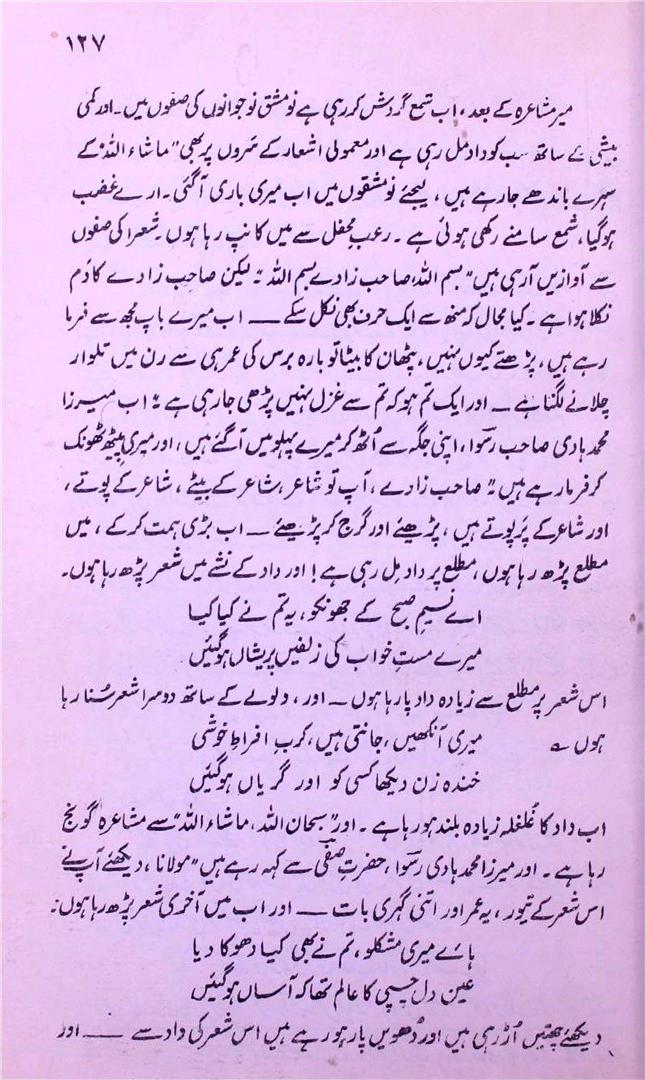 ۱۲۷
میر مشاعرہ کے بعد، اب شمع گردش کر رہی ہے نو مشق نوجوانوں کی صفوں میں۔ اور کمی
بیشی کے ساتھ سب کو داد مل رہی ہے اور معمولی اشعار کے سَروں پر بھی "ماشاء اللہ" کے
سہرے باندھے جارہے ہیں، لیجئے نو مشقوں میں اب میری باری آگئی۔ ارے غضب
ہوگیا، شمع سامنے رکھی ہوئی ہے۔ رعبِ محفل سے میں کانپ رہا ہوں۔ شعرا کی صفوں
سے آوازیں آرہی ہیں "بسم اللہ، صاحب زادے بسم اللہ"۔ لیکن صاحب زادے کا دَم
نکلا ہوا ہے۔ کیا مجال کہ منھ سے ایک حرف بھی نکل سکے ـــ اب میرے باپ مجھ سے فرما
رہے ہیں، پڑھتے کیوں نہیں، پٹھان کا بیٹا تو بارہ برس کی عمر ہی سے رن میں تلوار
چلانے لگتا ہے ـــ اور ایک تم ہو کہ تم سے غزل نہیں پڑھی جارہی ہے" اب میرزا
محمد ہادی صاحب رسوا، اپنی جگہ سے اُٹھ کر میرے پہلو میں آگئے ہیں، اور میری پیٹھ ٹھونک
کر فرما رہے ہیں" صاحب زادے، آپ تو شاعر، شاعر کے بیٹے، شاعر کے پوتے،
اور شاعر کے پَر پوتے ہیں، پڑھیئے اور گرج کر پڑھیئے ـــ اب بڑی ہمت کرکے، میں
مطلع پڑھ رہا ہوں، مطلع پر داد مِل رہی ہے! اور داد کے نشے میں شعر پڑھ رہا ہوں۔
اے نسیمِ صبح کے جھونکو، یہ تم نے کیا کیا
میرے مستِ خواب کی زلفیں پریشاں ہوگئیں
اس شعر پر مطلع سے زیادہ داد پا رہا ہوں ـــ اور، ولولے کے ساتھ دوسرا شعر سُنا رہا
ہوں ؎ میری آنکھیں، جانتی ہیں، کربِ افراطِ خوشی
خندہ زن دیکھا کسی کو اور گریاں ہوگئیں
اب داد کا غُلغلہ زیادہ بلند ہو رہا ہے۔ اور "سبحان اللہ، ماشاء اللہ" سے مشاعرہ گونج
رہا ہے۔ اور میرزا محمد ہادی رسوا، حضرتِ صفی سے کہہ رہے ہیں "مولانا، دیکھئے آپ نے
اس شعر کے تیور، یہ عمر اور اتنی گہری بات ـــ اور اب میں آخری شعر پڑھ رہا ہوں۔
ہائے میری مشکلو، تم نے بھی کیا دھوکا دیا
عین دل چسپی کا عالم تھا کہ آساں ہوگئیں
دیکھئے چھتیں اُڑ رہی ہیں اور دُھویں پار ہو رہے ہیں اس شعر کی داد سے ـــ اور